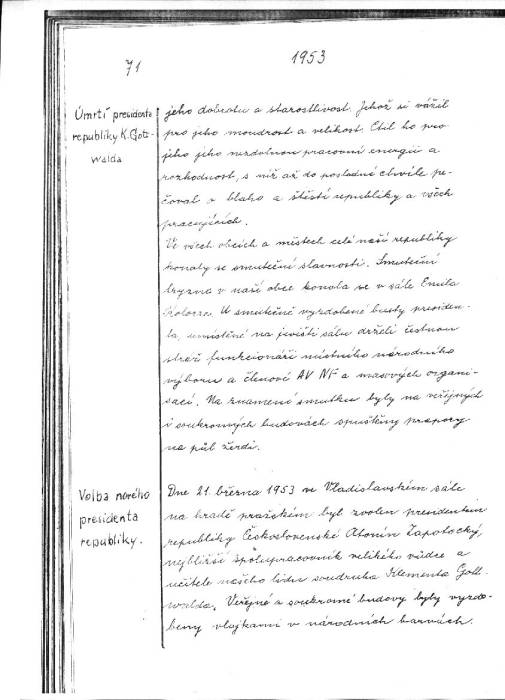 71
1953
Úmrtí presidenta
republiky K. Gott-
walda
jeho dobrotu a starostlivost. Jehož si vážil
pro jeho moudrost a velikost. Ctil ho pro
jeho jeho nezdolnou pracovní energii a
rozhodnost, s níž až do poslední chvíle pe-
čoval o blaho a štěstí republiky a všech
pracujících.
Ve všech obcích a městech celé naší republiky
konaly se smuteční slavnosti. Smuteční
tryzna v naší obci konala se v sále Emila
U smutečně vyzdobené busty presiden-
ta, umístěné na jevišti sálu drželi čestnou
stráž funkcionáři místního národního
výboru a členové AV NF a masových organi-
sací. Na znamení smutku byly na veřejných
i soukromých budovách spuštěny prapory
na půl žerdi.
Volba nového
presidenta
republiky.
Dne 21. března 1953 ve Vladislavském sále
na hradě pražském byl zvolen presidentem
republiky Československé Antonín Zápotocký,
nejbližší spolupracovník velikého vůdce a
učitele našeho lidu soudruha Klementa Gott-
walda. Veřejné a soukromé budovy byly vyzdo-
beny vlajkami v národních barvách.